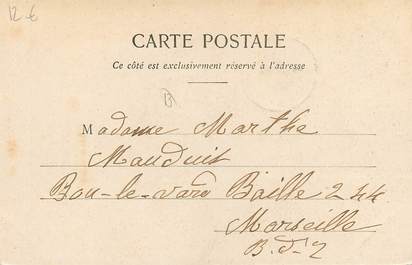 12 €
CARTE POSTALE
Ce côté est exclusivement réservé à l'adresse
B
Madame Marthe
Mauduit
Bou-le-vard Baille 244
Marseille
B. d. 2